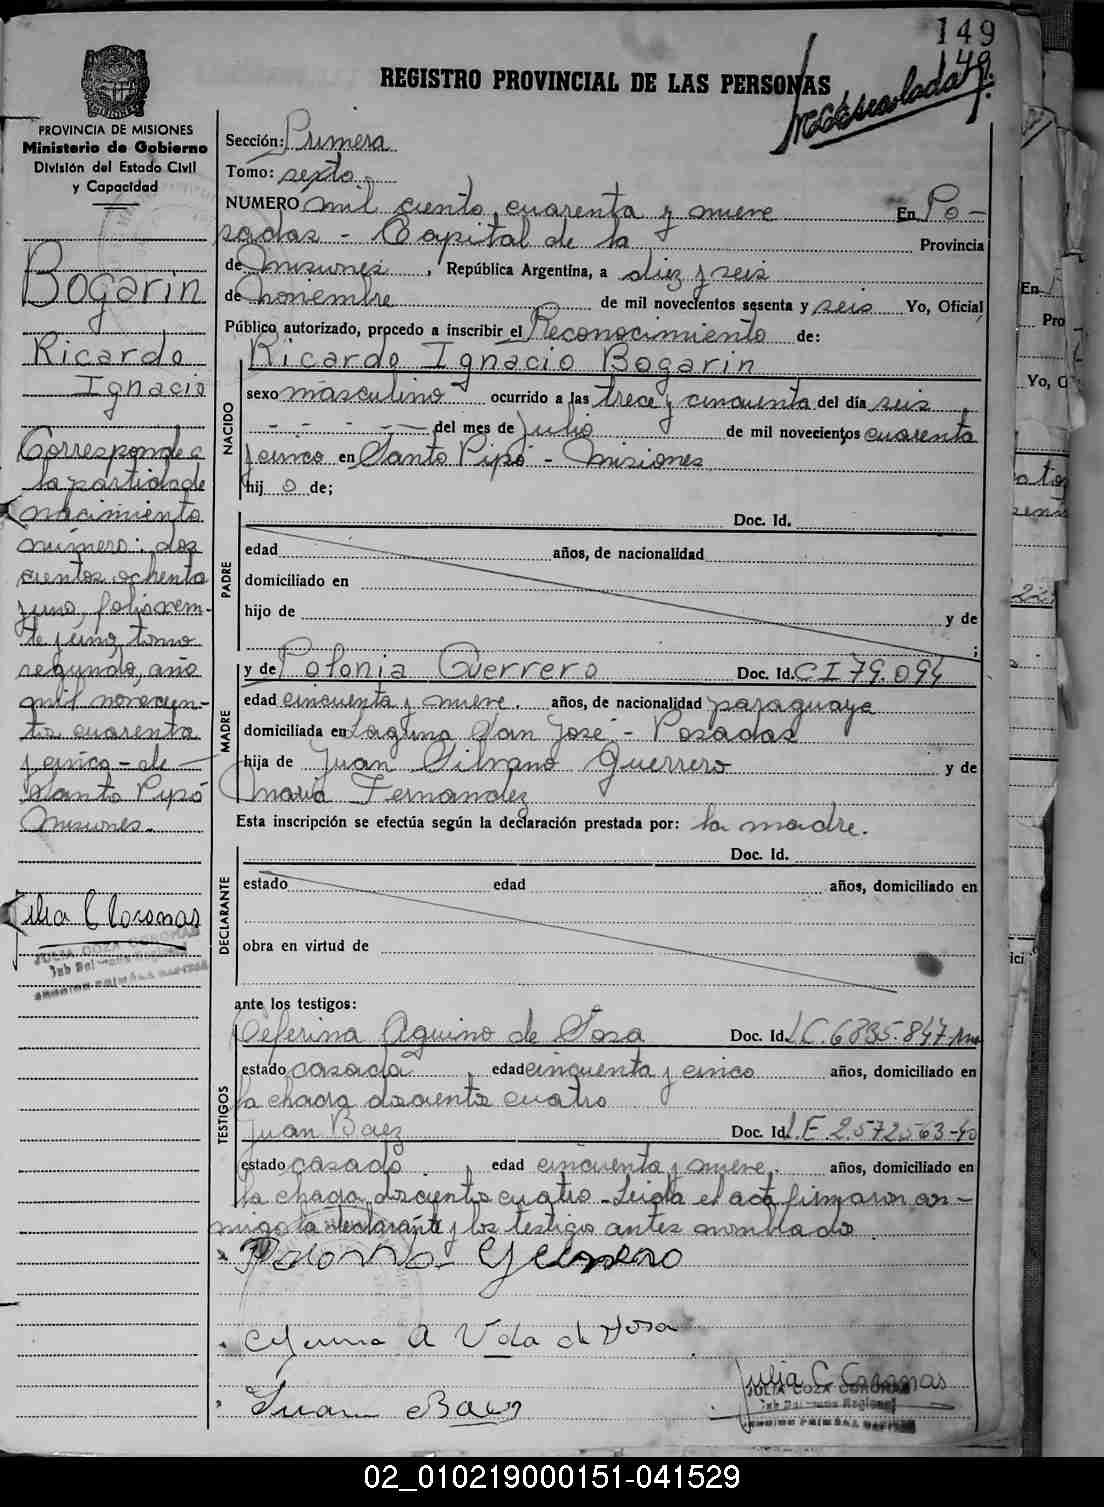 149
REGISTRO PROVINCIAL DE LAS PERSONAS
49.
PROVINCIA DE MISIONES
Ministerio de Gobierno
División del Estado Civil
y Capacidad
Bogarin
Ricardo
Ignacio
Corresponde a
la partida de
nacimiento
número: dos
cientos ochenta
y uno, folio vein-
te y uno, tomo
segundo, año
mil novecien-
to cuarenta
y cinco - de
Santo Pipó
Misiones.
Julia C Coronas
JULIA COZA CORONAS
Sección: Primera
Tomo: sexto
NUMERO mil ciento cuarenta y nueve En Po-
sadas - Capital de la Provincia
de Misiones, República Argentina, a diez y seis
de noviembre de mil novecientos sesenta y seis Yo, Oficial
Público autorizado, procedo a inscribir el Reconocimiento de:
Ricardo Ignacio Bogarin
NACIDO
sexo masculino ocurrido a las trece y cincuenta del día seis
- - - - - del mes de Julio de mil novecientos cuarenta
y cinco en Santo Pipó - Misiones
hij o de;
PADRE
Doc. Id.
edad años, de nacionalidad
domiciliado en
hijo de y de
;
MADRE
y de Polonia Guerrero Doc. Id. CI 79.094
edad cincuenta y nueve. años, de nacionalidad paraguaya
domiciliada en Laguna San José - Posadas
hija de Juan Silvano Guerrero y de
María Fernandez
Esta inscripción se efectúa según la declaración prestada por: la madre.
DECLARANTE
Doc. Id.
estado edad años, domiciliado en
obra en virtud de
ante los testigos:
TESTIGOS
Ceferina Aquino de Sosa Doc. Id. L.C. 6835.847
estado casada, edad cincuenta y cinco años, domiciliado en
la chacra doscientos cuatro
Juan Baez Doc. Id. L.E. 2.572563-40
estado casado, edad cincuenta y nueve. años, domiciliado en
la chacra doscientos cuatro - Leida el acta firmaron con-
migo la declarante y los testigos antes nombrado
Polonia Guerrero
Ceferina A Vda de Sosa
Juan Baez
Julia C Coronas
JULIA COZA CORONAS
02_010219000151-041529